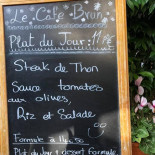 Le Café Brun
Plat du Jour:
Steak de Thon
Sauce tomates
aux olives,
Riz et Salade
Formule à
Plat du Jour + dessert Formule